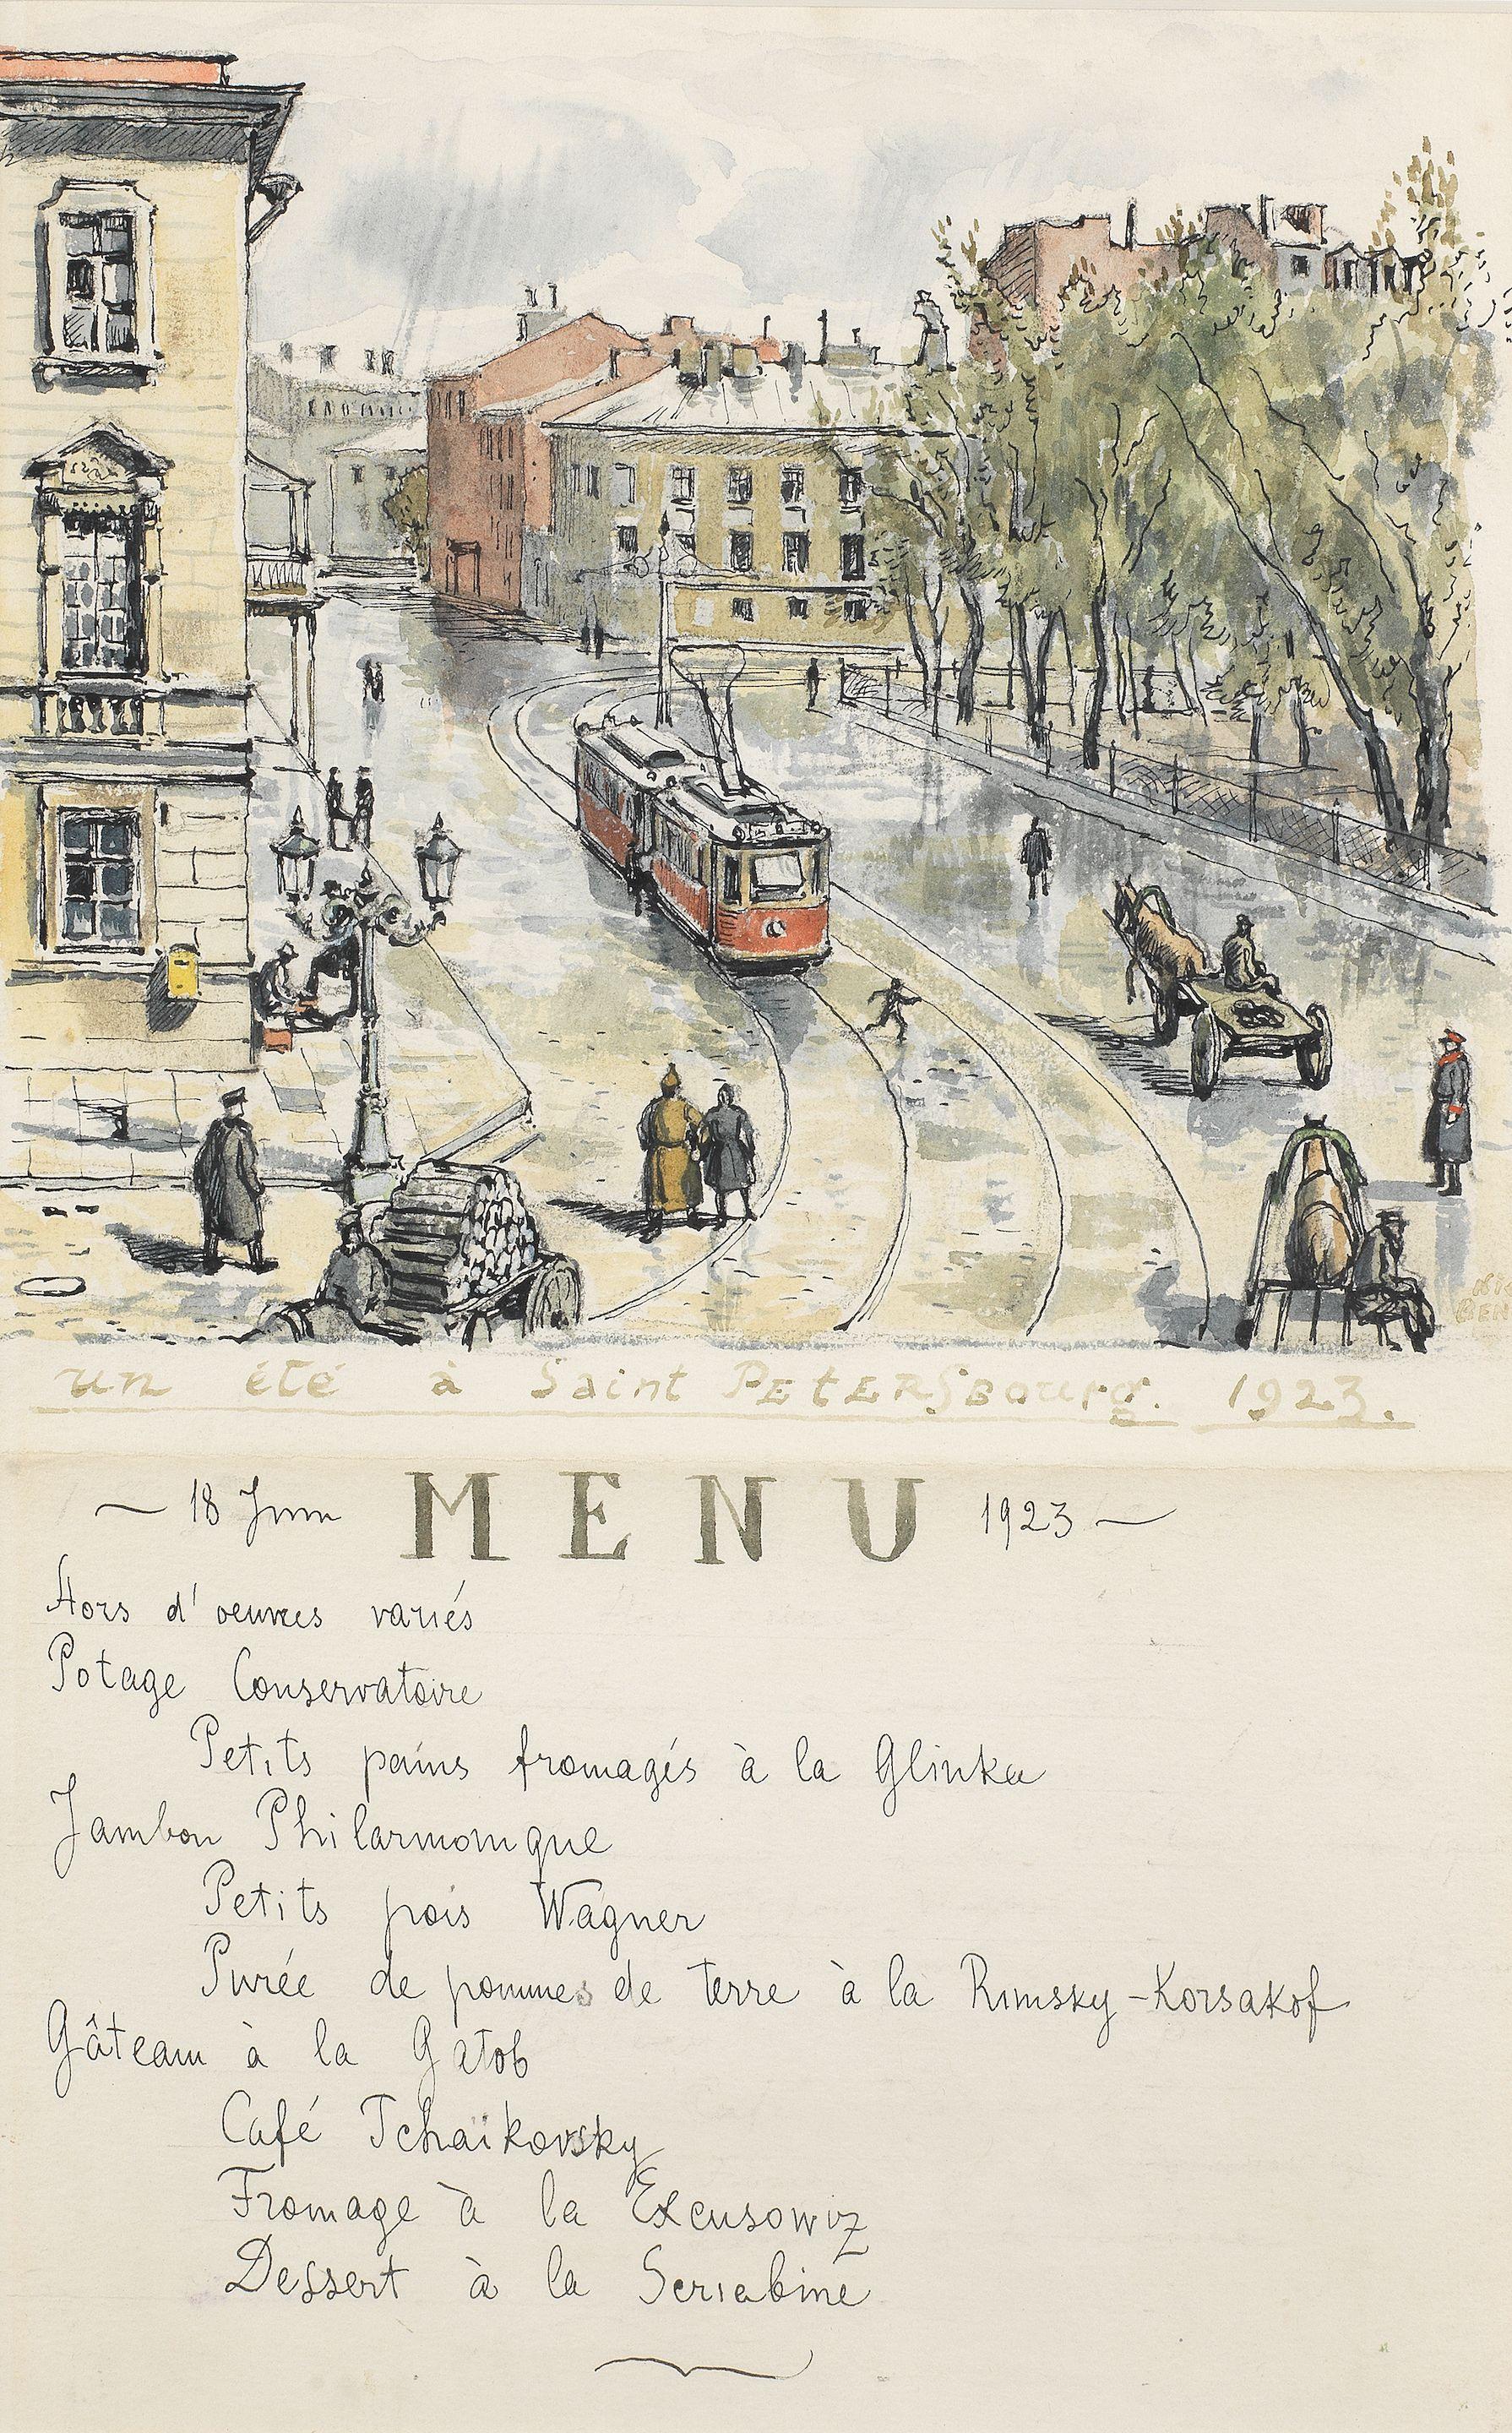 un été à Saint PETERSBourg. 1923.
~ 18 Juin MENU 1923 ~
Hors d'oeuvres variés
Potage Conservatoire
Petits pains fromagés à la Glinka
Jambon Philarmonique
Petits pois Wagner
Purée de pommes de terre à la Rimsky-Korsakof
Gâteau à la
Café Tchaïkovsky
Fromage à la Excusowiz
Dessert à la Scriabine